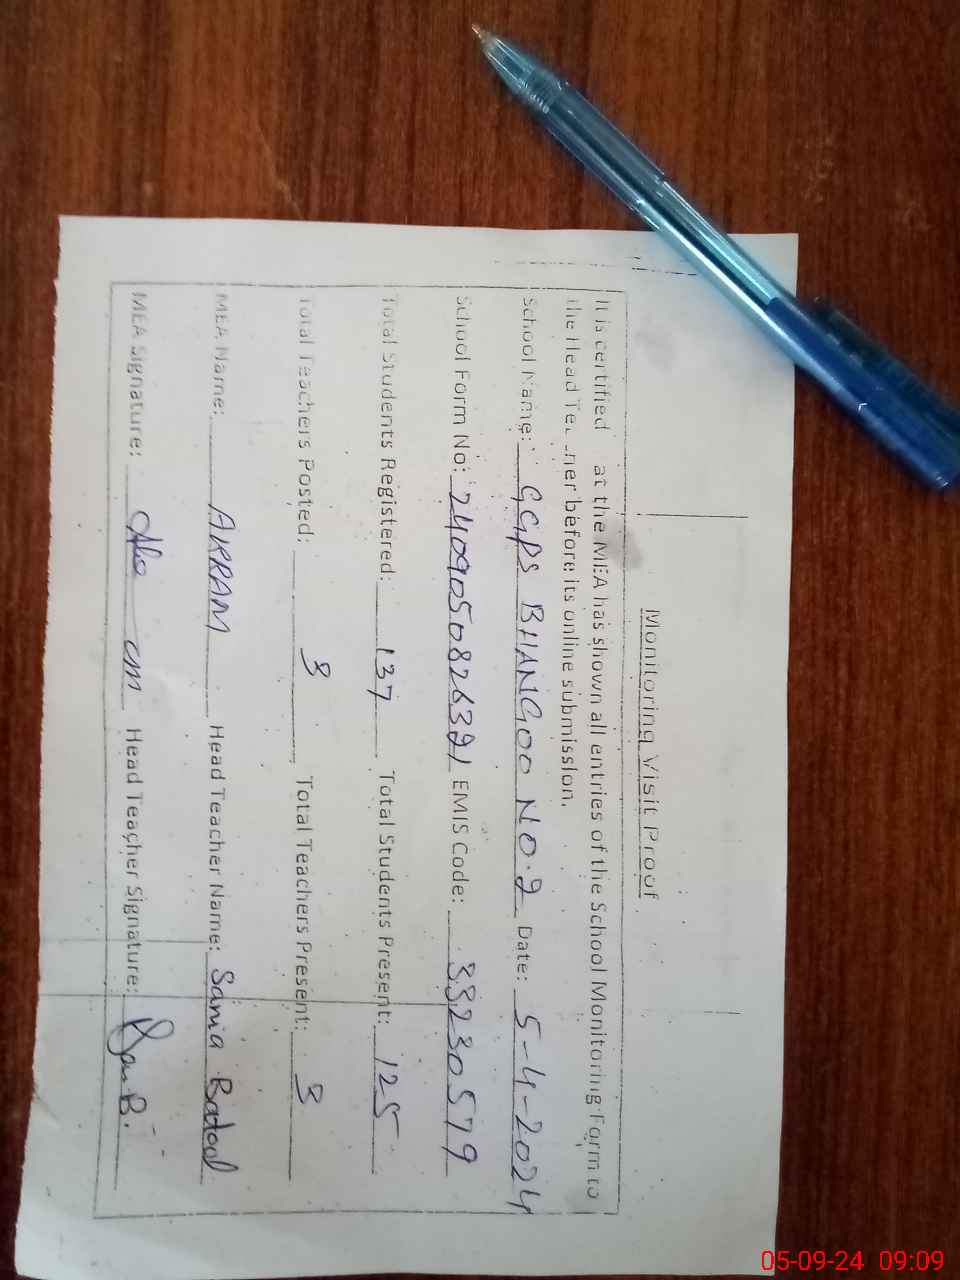 Monitoring Visit Proof
It is certified at the MEA has shown all entries of the School Monitoring Form to
the Head Te. .ner before its online submission.
School Name: GGPS BHANGOO NO.2 Date: 5-4-2024
School Form No: 24090508263921 EMIS Code: 33230579
Total Students Registered: 137 Total Students Present: 125
Total Teachers Posted: 3 Total Teachers Present: 3
MEA Name: AKRAM Head Teacher Name: Sania Batool
MEA Signature: Head Teacher Signature:
05-09-24 09:09